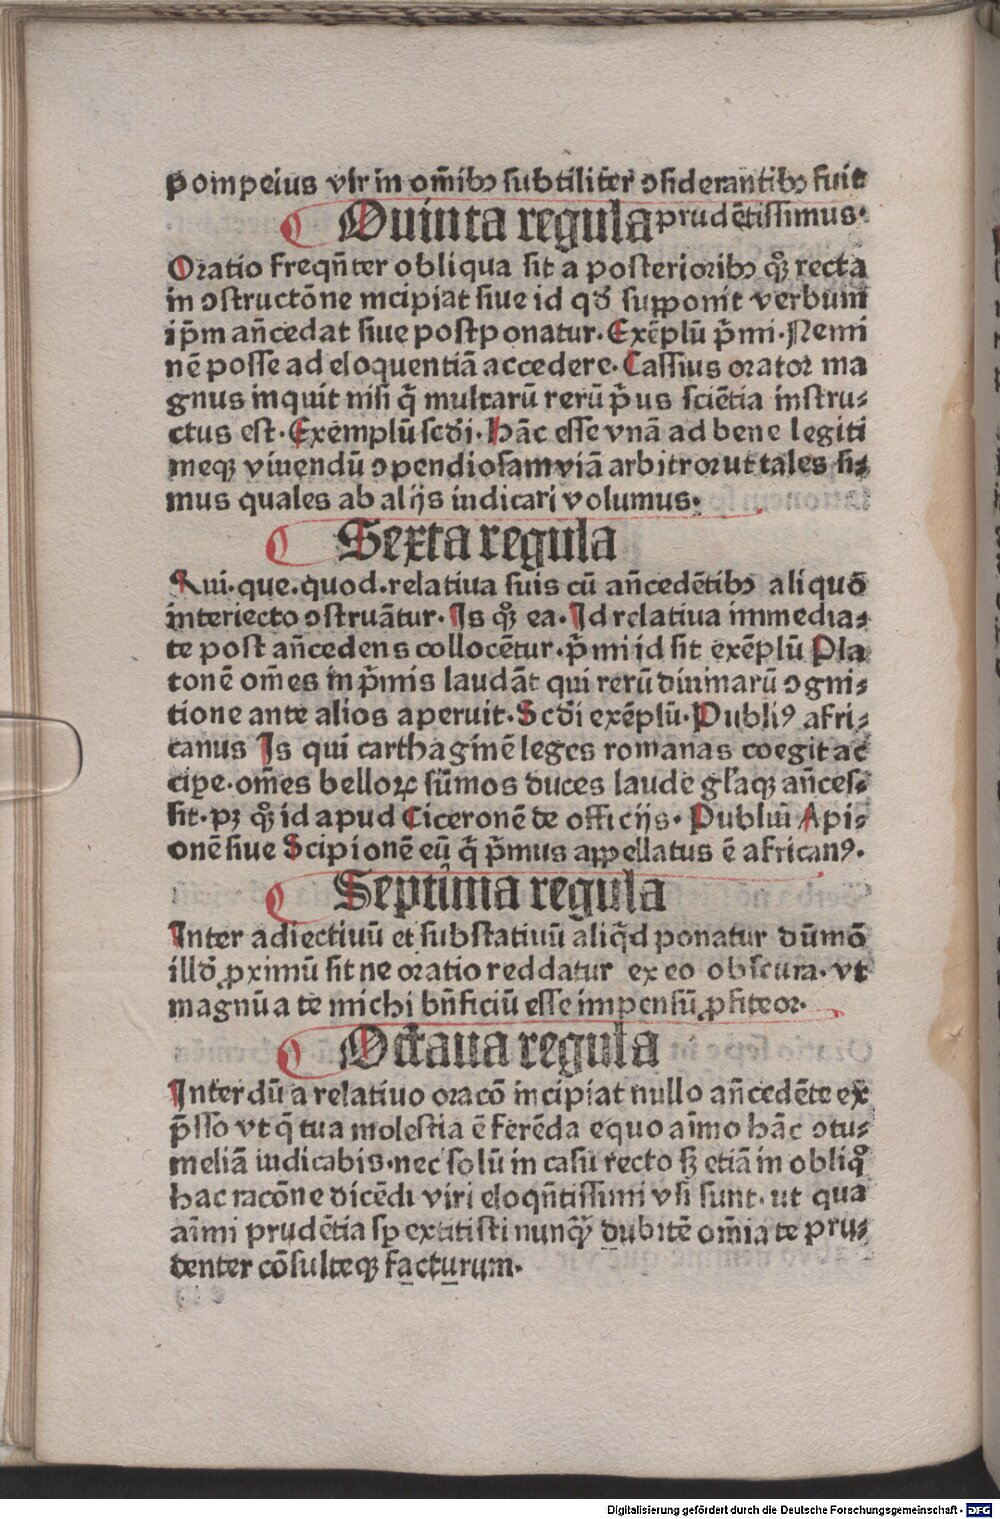 pompeius vir in om̄ibꝫ subtiliter ↄsiderantibꝫ fuit
Quinta regula prudētissimus.
Oratio freqn̄ter obliqua sit a posterioribꝫ qꝫ recta
in ↄstructōne incipiat siue id qđ supponit verbum
ip̄m an̄cedat siue postponatur. Exēplū p̄mi. Nemi
nē posse ad eloquentiā accedere. Cassius orator ma
gnus inquit nisi q̄ multarū rerū p̄us sciētia instru⸗
ctus est. Exemplū scd̄i. Hāc esse vnā ad bene legiti
meqꝫ viuendū ↄpendiosam viā arbitror ut tales si⸗
mus quales ab alijs iudicari volumus.
Sexta regula
Qui. que. quod. relatiua suis cū an̄cedētibꝫ aliquo
interiecto ↄstruātur. Is qꝫ ea. Id relatiua immedia⸗
te post an̄cedens collocētur. p̄mi id sit exēplū Pla
tonē om̄es in p̄mis laudāt qui rerū diuinarū ↄgni⸗
tione ante alios aperuit. Scd̄i exēplū. Publiꝰ afri⸗
canus Is qui carthaginē leges romanas coegit ac
cipe. om̄es belloꝝ sūmos duces laude gl̄aqꝫ an̄ces⸗
sit. pꝫ qꝫ id apud Ciceronē de officijs. Publiū Api⸗
onē siue Scipionē eū q̄ p̄mus appellatus ē africanꝰ.
Septima regula
Inter adiectiuū et substatiuū aliq̄d ponatur dūmō
illđ ꝓximū sit ne oratio reddatur ex eo obscura. vt
magnū a te michi bn̄ficiū esse impensū ꝓfiteor.
Octaua regula
Interdū a relatiuo oracō incipiat nullo an̄cedēte ex
p̄sso vt q̄ tua molestia ē ferēda equo aīmo hāc ↄtu⸗
meliā iudicabis. nec solū in casu recto sꝫ etiā in obliqꝫ
hac racōne dicēdi viri eloqn̄tissimi vsi sunt. ut qua
aīmi prudētia sp̄ extitisti nunqꝫ dubitē om̄ia te pru⸗
denter cōsulteqꝫ facturum.
Digitalisierung gefördert durch die Deutsche Forschungsgemeinschaft - DFG